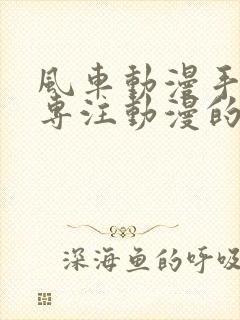 風車動漫手
专注動漫的
深海鱼的呼吸